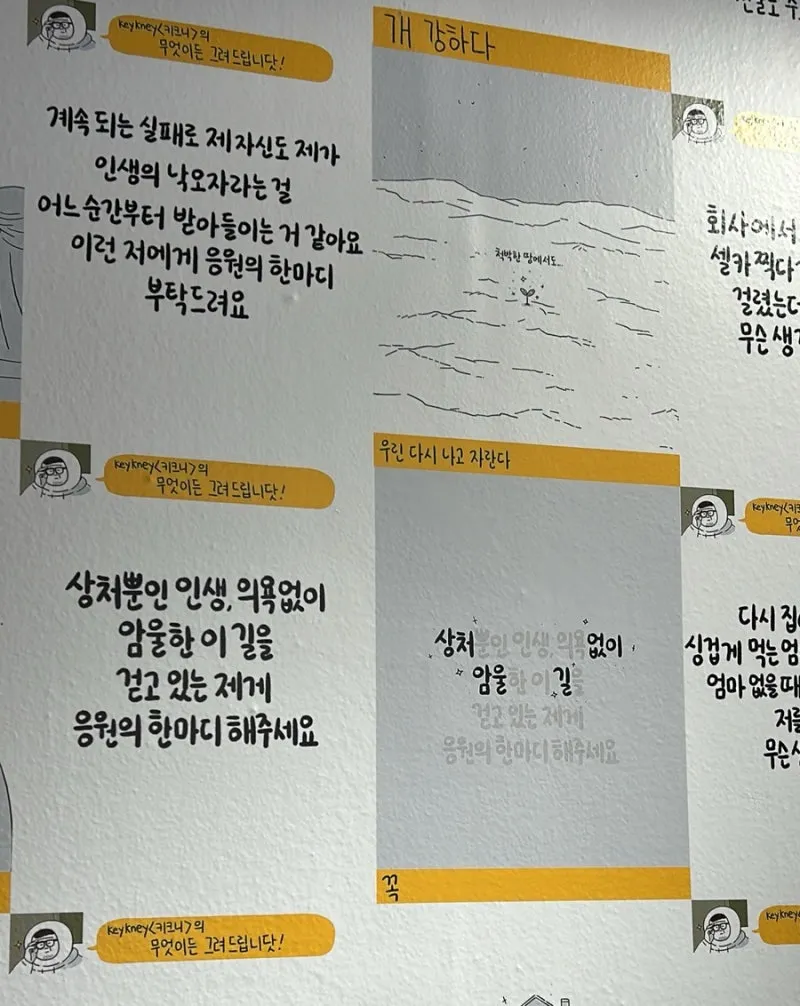 keykney<키크니>의
무엇이든 그려드립니닷!
계속 되는 실패로 제 자신도 제가
인생의 낙오자라는 걸
어느 순간부터 받아들이는 거 같아요
이런 저에게 응원의 한마디
부탁드려요
개 강하다
척박한 땅에서도...
우린 다시 나고 자란다
회사에서
셀카 찍다
걸렸는데
무슨 생
keykney<키크니>의
무엇이든 그려드립니닷!
상처뿐인 인생, 의욕없이
암울한 이 길을
걷고 있는 제게
응원의 한마디 해주세요
상처뿐인 인생, 의욕없이
암울한 이 길을
걷고 있는 제게
응원의 한마디 해주세요
꼭
keykney<키크
무엇
다시 집
싱겁게 먹는 엄
엄마 없을 때
저를
무슨
keykney<키크니>의
무엇이든 그려드립니닷!
keykney